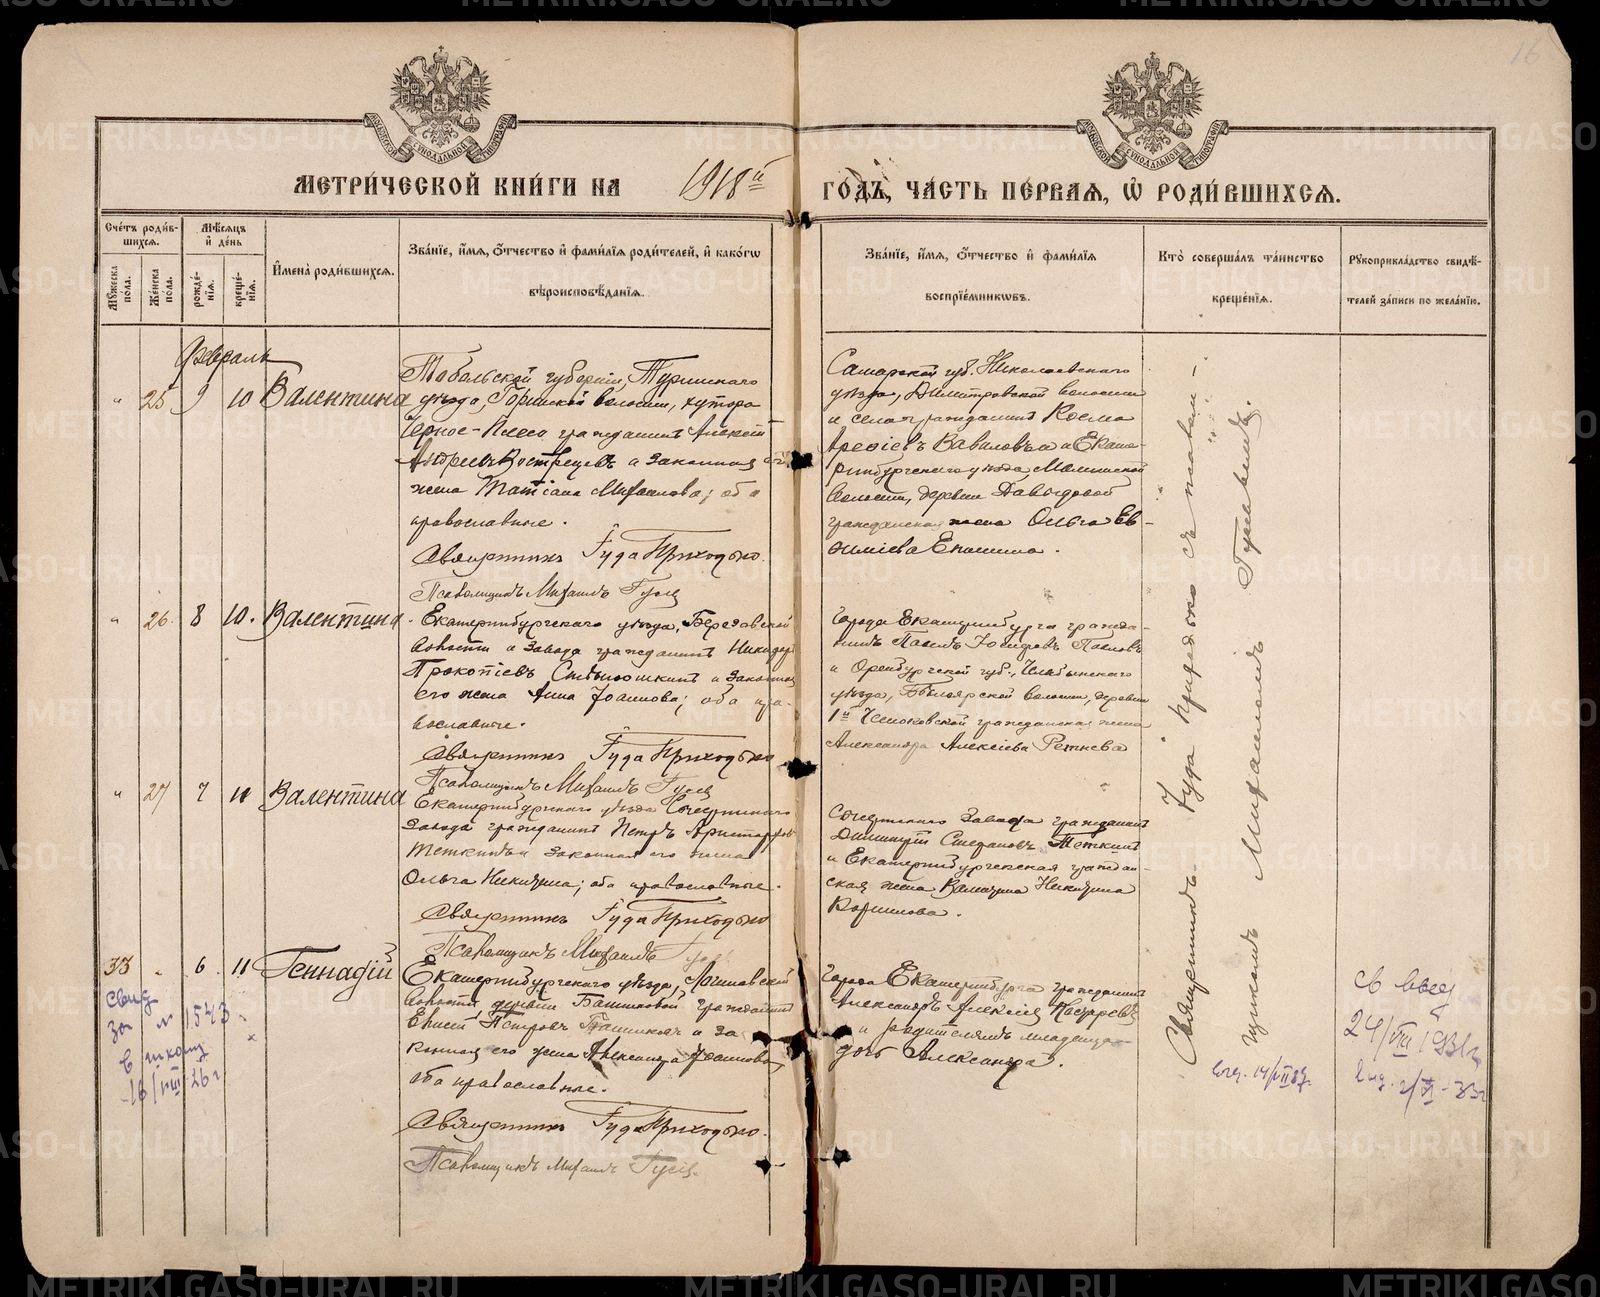 16
МЕТРИЧЕСКОЙ КНИГИ НА 1918й ГОДЪ, ЧАСТЬ ПЕРВАЯ, Ѡ РОДИВШИХСЯ.
Счетъ родив-
шихся.
Мѣсяцъ
и день
Мужеска
пола.
Женска
пола.
рожде-
нія.
креще-
нія.
Имена родившихся.
Званіе, имя, отчество и фамилія родителей, и какогѡ
вѣроисповѣданія.
Званіе, имя, отчество и фамилія
воспріемниковъ.
Кто совершалъ таинство
крещенія.
Рукоприкладство свидѣ-
телей записи по желанію.
Февраль
" 25 9 10 Валентина
Тобольской губерніи, Туринскаго
уѣзда, Горинской волости, хутора
Черное-Плесо гражданинъ Алексѣй
Андреевъ Вострецовъ и законная его
жена Татіана Михаилова; оба
православные.
Священникъ Іуда Приходько.
Псаломщикъ Михаилъ Гусев
Самарской губ. Николаевскаго
уѣзда, Димитровской волости
и села гражданинъ Косма
Ареѳіевъ Вавиловъ и Екате-
ринбургскаго уѣзда,
волости, деревни Давыдовой
гражданская жена Ольга Ев-
ѳиміева
" 26. 8 10. Валентина.
Екатеринбургскаго уѣзда, Березовской
волости и завода гражданинъ Никифор
Прокопіевъ и законная
его жена Анна Іоаннова; оба пра-
вославные.
Священникъ Іуда Приходько
Псаломщикъ Михаилъ Гусев
города Екатеринбурга гражда-
нинъ Павелъ Іосифовъ Павловъ
и Оренбургской губ., Челябинскаго
уѣзда, Бѣлоярской волости, деревни
1й гражданская жена
Александра Алексіева Ретнева
" 27 7 11 Валентина
Екатеринбургскаго уѣзда Сысертскаго
завода гражданинъ Петръ Аристарховъ
Меткинъ и законная его жена
Ольга Никитина; оба православные.
Священникъ Іуда Приходько
Псаломщикъ Михаилъ Гусев
Сысертскаго завода гражданинъ
Димитрій Стефановъ Меткинъ
и Екатеринбургская граждан-
ская жена Валентина Никитина
Корнилова.
33 " 6 11 Геннадій
Екатеринбургскаго уѣзда, Логиновской
волости, деревни Гражданинъ
Елисей Петровъ и за-
конная его жена Александра Іоаннова
оба православные.
Священникъ Іуда Приходько.
Псаломщикъ Михаилъ Гусев.
города Екатеринбурга гражданинъ
Александръ Алексіевъ
и родителямъ младенца
дочь Александра.
Свид
за № 1543
в школу
16/VIII-26 г
Священникъ Іуда Приходько съ псалом-
щикомъ Михаиломъ
14/VII
св выд
24/VIII 1931г
выд. 2/VI-33г